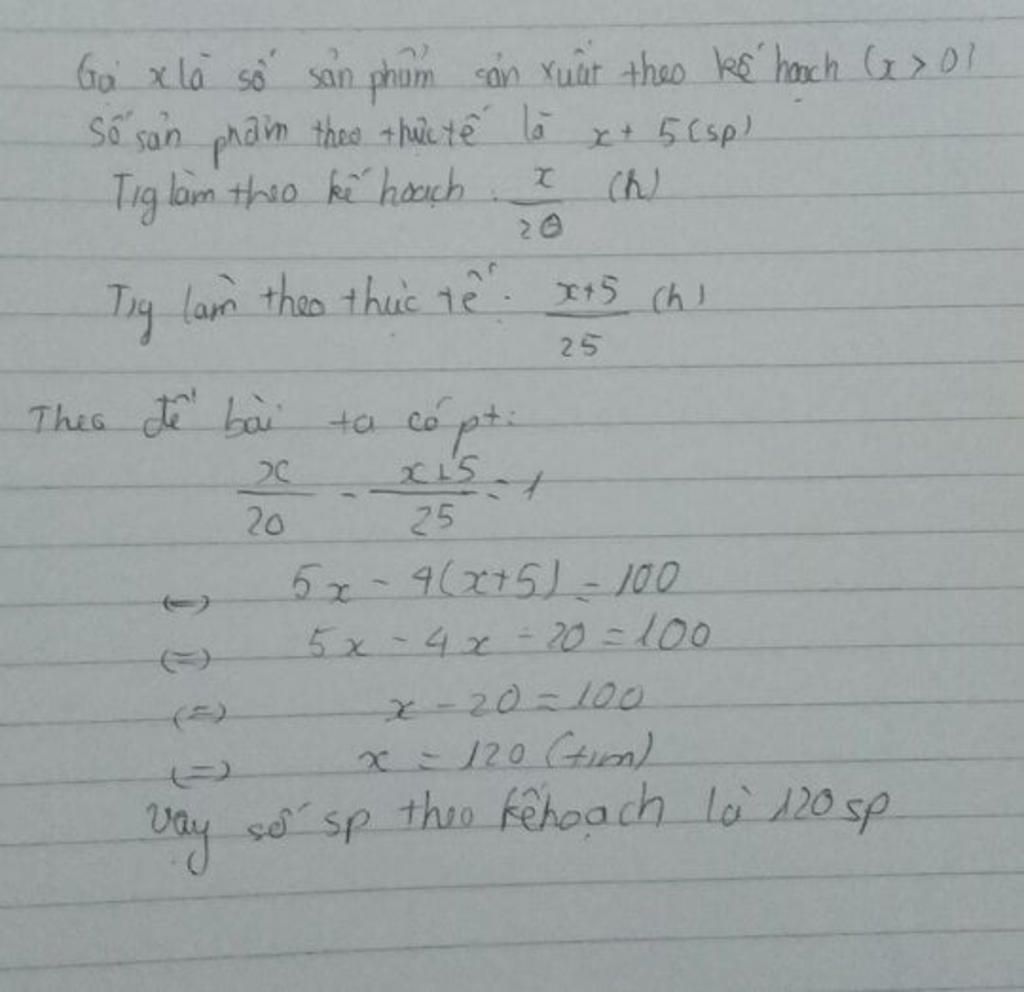 Gọi x là số sản phẩm sản xuất theo kế hoạch (x > 0)
Số sản phẩm theo thực tế là x + 5 (sp)
T/g làm theo kế hoạch: x/20 (h)
T/g làm theo thực tế: x+5/25 (h)
Theo đề bài ta có pt:
x/20 - x+5/25 = 1
<=> 5x - 4(x+5) = 100
<=> 5x - 4x - 20 = 100
<=> x - 20 = 100
<=> x = 120 (t/m)
Vậy số sp theo kế hoạch là 120 sp